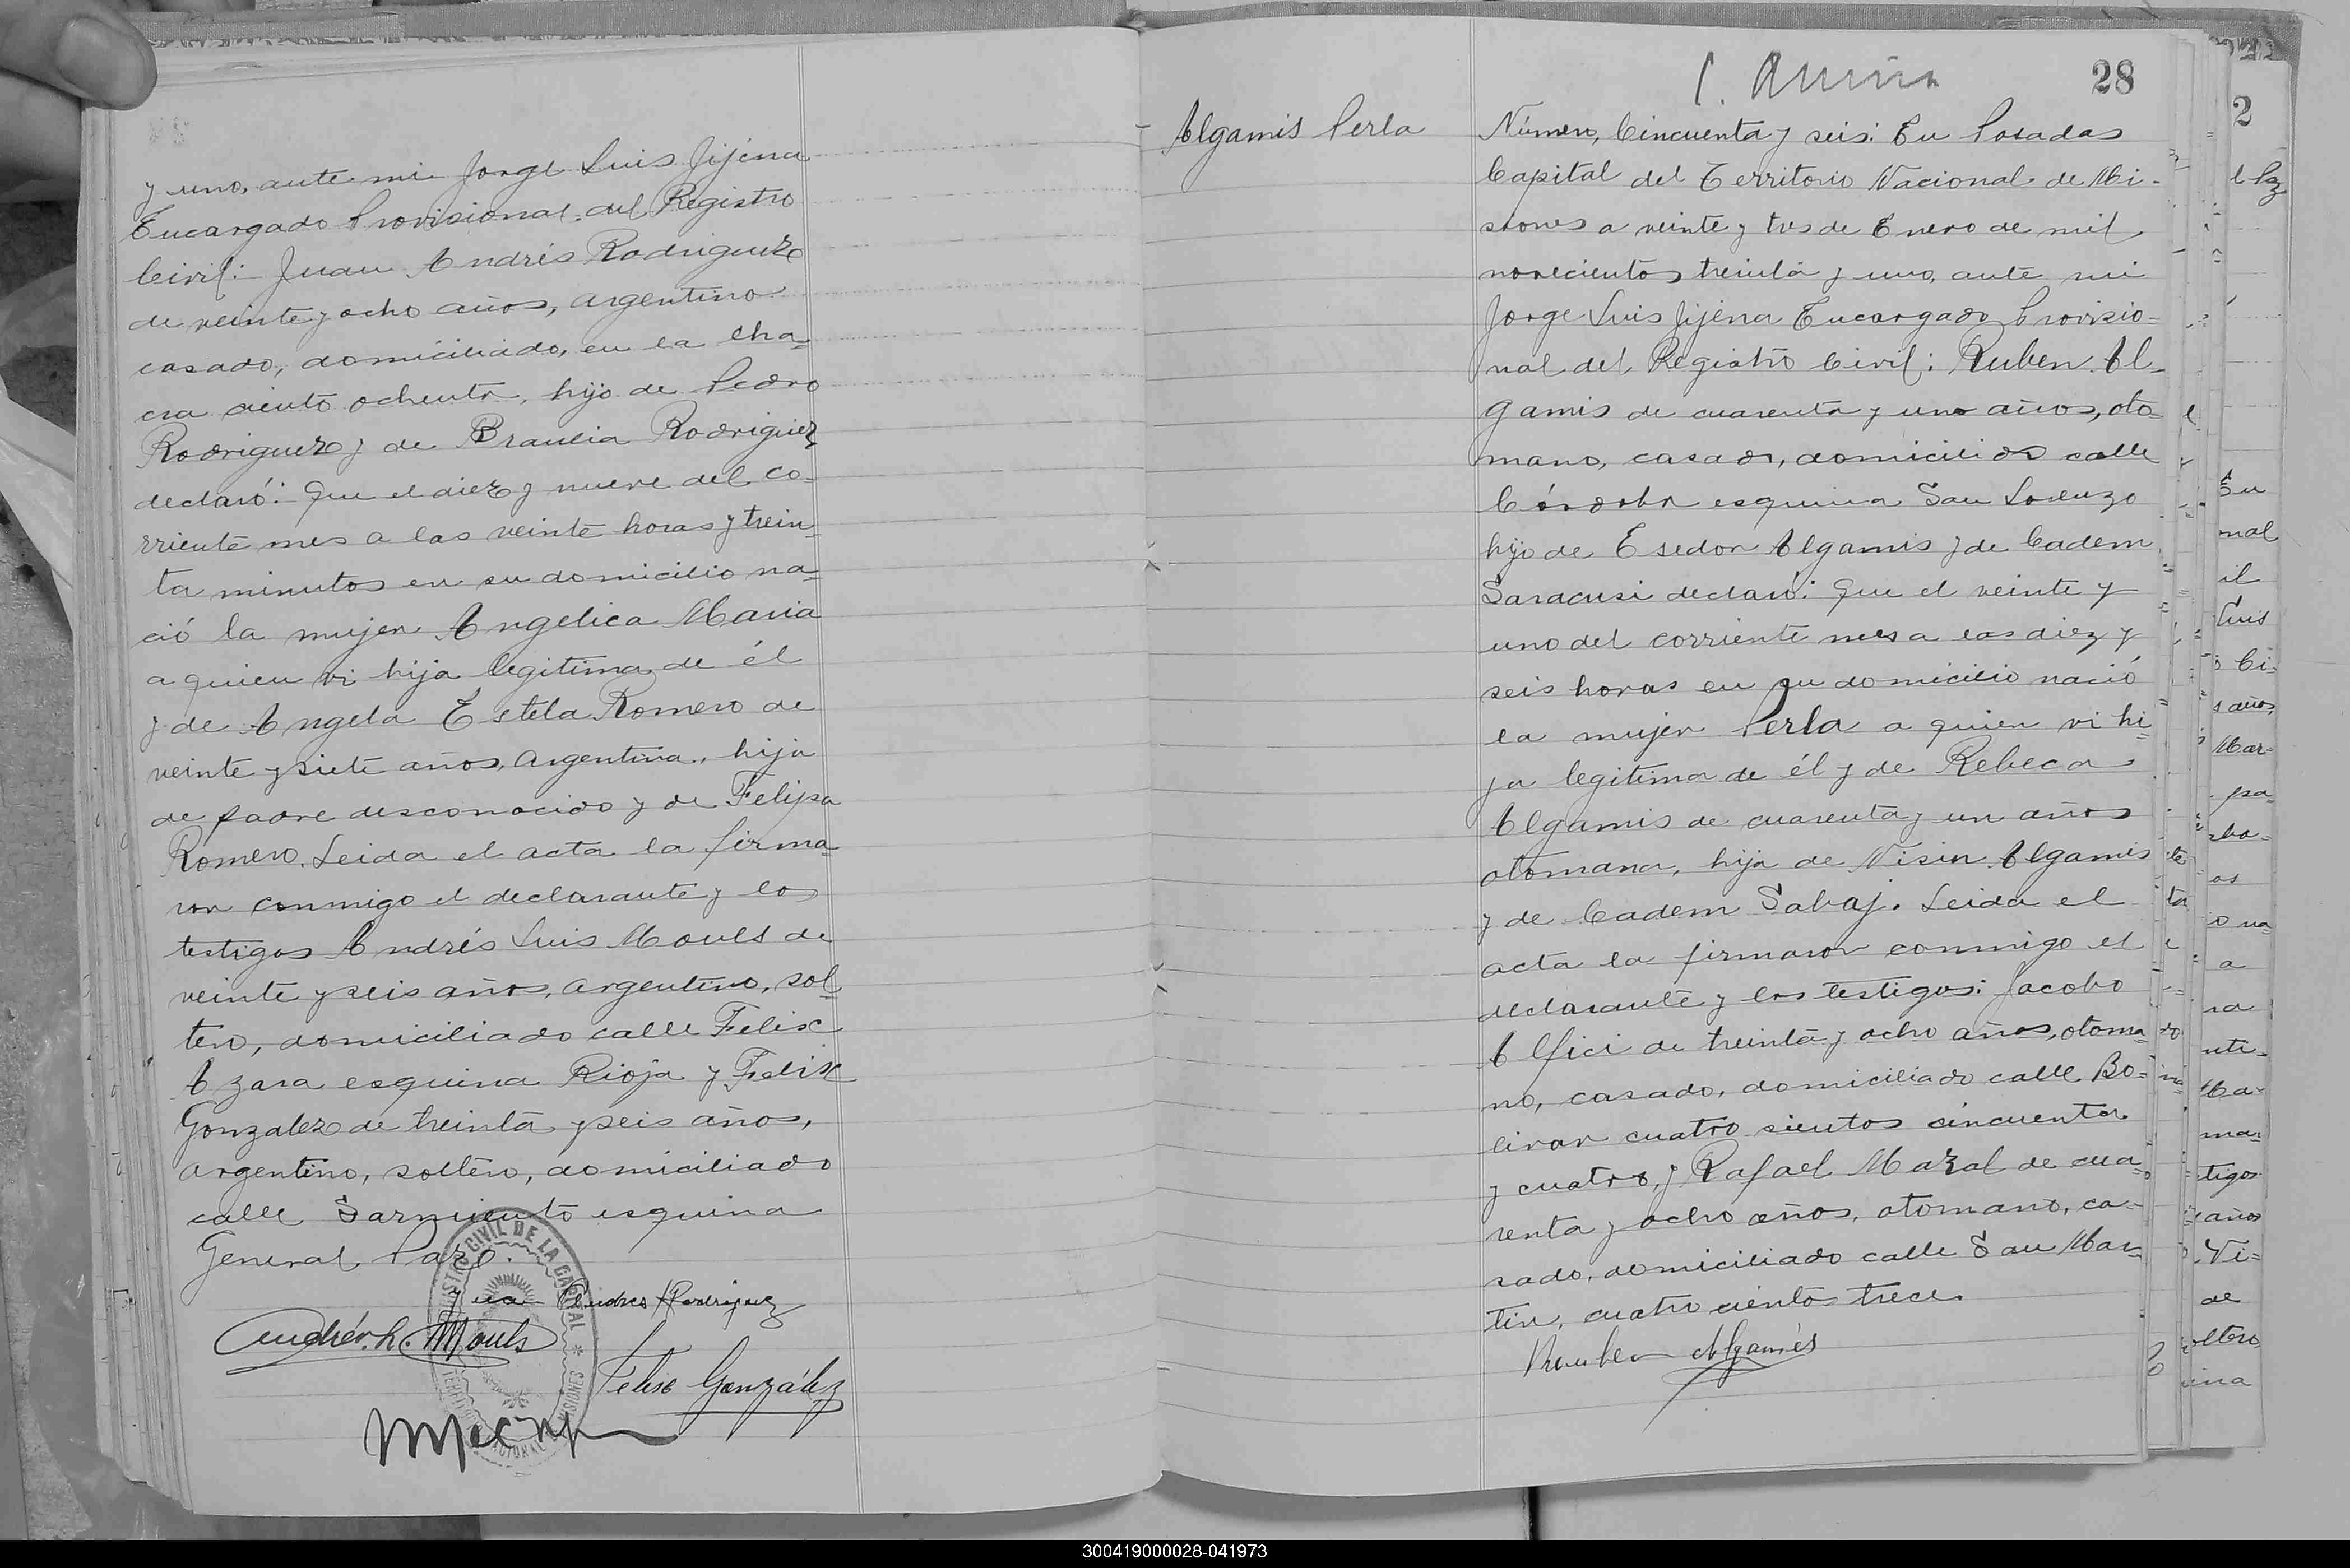 y uno, ante mi Jorge Luis Jijena
Encargado Provisional del Registro
Civil: Juan Andrés Rodriguez
de veinte y ocho años, argentino
casado, domiciliado, en la cha=
cra ciento ochenta, hijo de Pedro
Rodriguez y de Braulia Rodriguez
declaró: Que el diez y nueve del co=
rriente mes a las veinte horas y trein=
ta minutos en su domicilio na=
ció la mujer Angelica Maria
a quien vi hija legitima de él
y de Angela Estela Romero de
veinte y siete años, argentina, hija
de padre desconocido y de Felipa
Romero. Leida el acta la firma=
ron conmigo el declarante y los
testigos Andrés Luis Mouls de
veinte y seis años, argentino, sol=
tero, domiciliado calle Felix
Azara esquina Rioja y Felix
Gonzalez de treinta y seis años,
argentino, soltero, domiciliado
calle Sarmiento esquina
General Paz.
Juan Andres Rodriguez
Andrés L. Mouls
Felix González
REGISTRO CIVIL DE LA CAPITAL
TERRITORIO NACIONAL DE MISIONES
28
Algamis Perla
Número, Cincuenta y seis: En Posadas
Capital del Territorio Nacional de Mi-
siones a veinte y tres de Enero de mil
novecientos treinta y uno, ante mi
Jorge Luis Jijena Encargado Provisio=
nal del Registro Civil: Ruben Al-
gamis de cuarenta y uno años, oto=
mano, casado, domicilido calle
Córdoba esquina San Lorenzo
hijo de Esedor Algamis y de Cadem
Saracusi declaró: Que el veinte y
uno del corriente mes a las diez y
seis horas en su domicilio nació
la mujer Perla a quien vi hi=
ja legitima de él y de Rebeca
Algamis de cuarenta y un años
otomana, hija de Nisin Algamis
y de Cadem Sabaj. Leida el
acta la firmaron conmigo el
declarante y los testigos: Jacobo
Alfici de treinta y ocho años, otoma=
no, casado, domiciliado calle Bo=
livar cuatro sientos cincuenta
y cuatro, y Rafael Mazal de cua=
renta y ocho años, otomano, ca-
sado, domiciliado calle San Mar=
tin, cuatro ciento trece.
Reuben Algamés
300419000028-041973